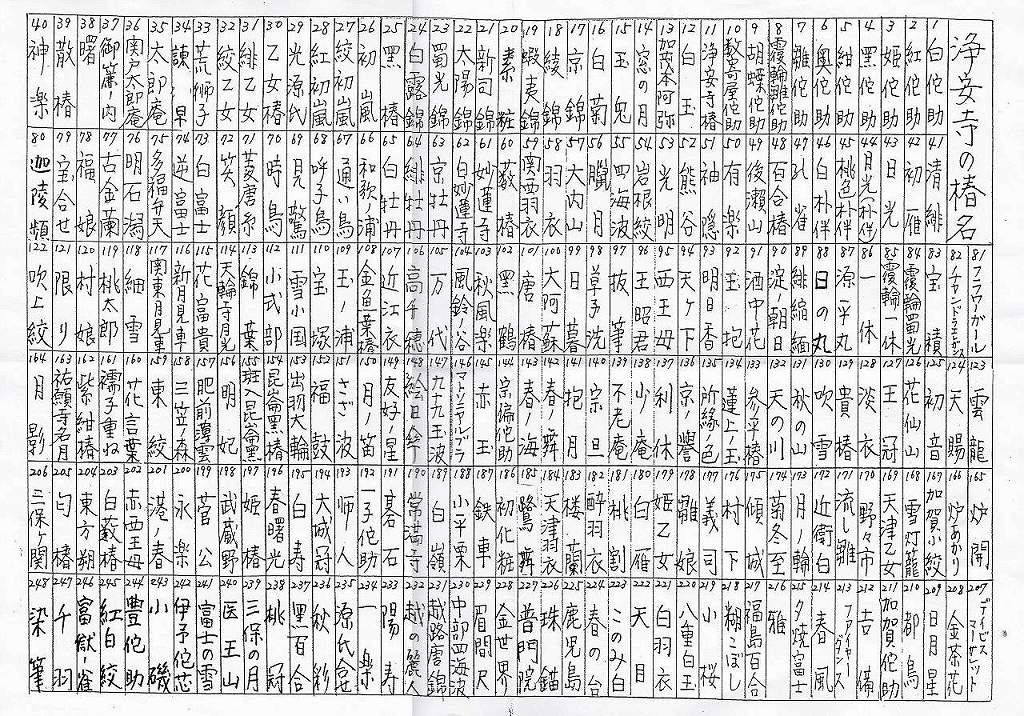 浄安寺の椿名
1 白侘助
2 紅侘助
3 姫侘助
4 黑侘助
5 紺侘助
6 奥侘助
7 雛侘助
8 覆輪雛侘助
9 胡蝶侘助
10 数寄屋侘助
11 浄安寺椿
12 白玉
13 加茂本阿弥
14 窓の月
15 玉兎
16 白菊
17 京錦
18 綾錦
19 蝦夷錦
20 素粧
21 新司錦
22 太陽錦
23 蜀光錦
24 白露錦
25 黑椿
26 初嵐
27 絞初嵐
28 紅初嵐
29 光源氏
30 乙女椿
31 緋乙女
32 絞乙女
33 荒獅子
34 諌早
35 太郎庵
36 関戸太郎庵
37 御簾ノ内
38 曙
39 散椿
40 神楽
41 清緋
42 初雁
43 日光
44 月光(卜伴)
45 桃色卜伴
46 白卜伴
47 孔雀
48 百合椿
49 後瀬山
50 有楽
51 神隠
52 熊谷
53 光明
54 岩根絞
55 四海波
56 朧月
57 大内山
58 羽衣
59 関西羽衣
60 薮椿
61 妙蓮寺
62 白妙蓮寺
63 京牡丹
64 緋牡丹
65 白牡丹
66 和歌浦
67 通い鳥
68 呼子鳥
69 見驚
70 時鳥
71 菱唐糸
72 笑顔
73 白富士
74 逆富士
75 多福弁天
76 明石潟
77 古金蘭
78 福娘
79 宝合せ
80 迦陵頻
81 フラワーガール
83 宝積
84 覆輪蜀光
85 覆輪一休
86 一休
87 源平丸
88 日の丸
89 緋縮緬
90 淀ノ朝日
91 酒中花
92 玉抱
93 明日香
94 天ヶ下
95 西王母
96 王昭君
97 抜筆
98 草子洗
99 日暮
100 大阿蘇
101 唐椿
102 黑鶴
103 秋風楽
104 風鈴ノ谷
105 万代
106 高千穂
107 近江衣
108 金魚葉椿
109 玉ノ浦
110 宝塚
111 雪小国
112 小式部
113 錦葉
114 天輪寺月光
115 花富貴
116 新月見車
117 関東月見車
118 細雪
119 桃太郎
120 村娘
121 限り
122 吹上絞
123 雲龍
124 天賜
125 初音
126 花仙山
127 王冠
128 淡衣
129 貴椿
130 吹雪
131 秋の山
132 天の川
133 参平椿
134 蓮上ノ玉
135 所縁ノ色
136 京ノ誉
137 利休
138 少ノ庵
139 不老庵
140 宗旦
141 抱月
142 春ノ舞
143 春ノ海
144 宗徧侘助
145 赤玉
147 九十九玉波
148 絵日傘
149 友好ノ星
150 月ノ笛
151 さざ波
152 福鼓
153 出羽大輪
154 昆侖黑
155 斑入昆侖黑
156 明妃
157 肥前薄雪
158 三笠ノ森
159 東絞
160 花言葉
161 濡子重ね
162 紫紺椿
163 祐願寺名月
164 月影
165 炉開
166 炉あかり
167 加賀小絞
168 雪灯籠
169 天津乙女
170 野々市
171 流し雛
172 近衛白
173 月ノ輪
174 菊冬至
175 傾城
176 村下
177 義司
178 雛娘
179 姫乙女
180 白雁
181 桃割
182 酔羽衣
183 楼蘭
184 天津羽衣
185 鷺舞
186 初化粧
187 鉄車
188 小平栗
189 白嶺
190 常満寺
191 碁石
192 一子侘助
193 師人
194 大城冠
195 白寿
196 春曙光
197 姫椿
198 武蔵野
199 菅公
200 永楽
201 港ノ春
202 赤西王母
203 白藪椿
204 東方朔
205 匂椿
206 三保ヶ関
207 デイビスマーサンット
208 金茶花
209 日月星
210 都鳥
211 加賀侘助
212 吉備
213 ファイヤーダンス
214 春風
215 夕焼富士
216 雅
217 福島百合
218 糊こぼし
219 小桜
220 八重白玉
221 白羽衣
222 天目
223 このみ白
224 春の台
225 鹿児島
226 珠錨
227 普門院
228 金世界
229 眉間尺
230 中部四海波
231 越路唐錦
232 越の麗人
233 陽寿
234 一楽
235 源氏合せ
236 秋彩
237 黑百合
238 桃冠
239 三保の月
240 医王山
241 富士の雪
242 伊予侘芯
243 小磯
244 豊侘助
245 紅白絞
246 富獄ノ雀
247 千羽
248 染筆